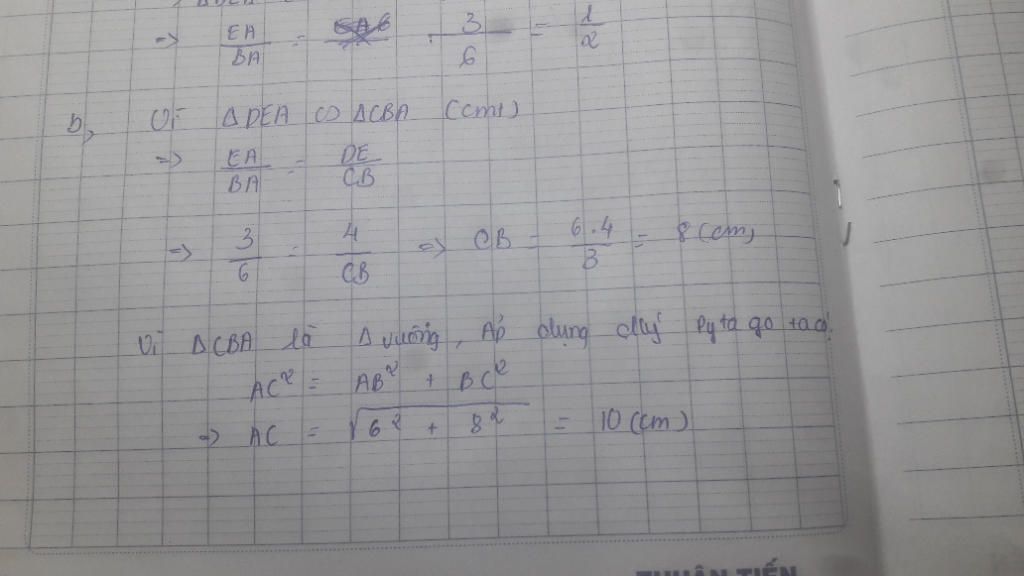 => EA/BA = 3/6 = 1/2
b, Vì ΔDEA ∽ ΔCBA (cmt)
=> EA/BA = DE/CB
=> 3/6 = 4/CB => CB = 6.4/3 = 8 (cm)
Vì ΔCBA là Δ vuông, Áp dụng đlý Pytago ta có:
AC² = AB² + BC²
=> AC = √(6² + 8²) = 10 (cm)
THUẬN TIẾN